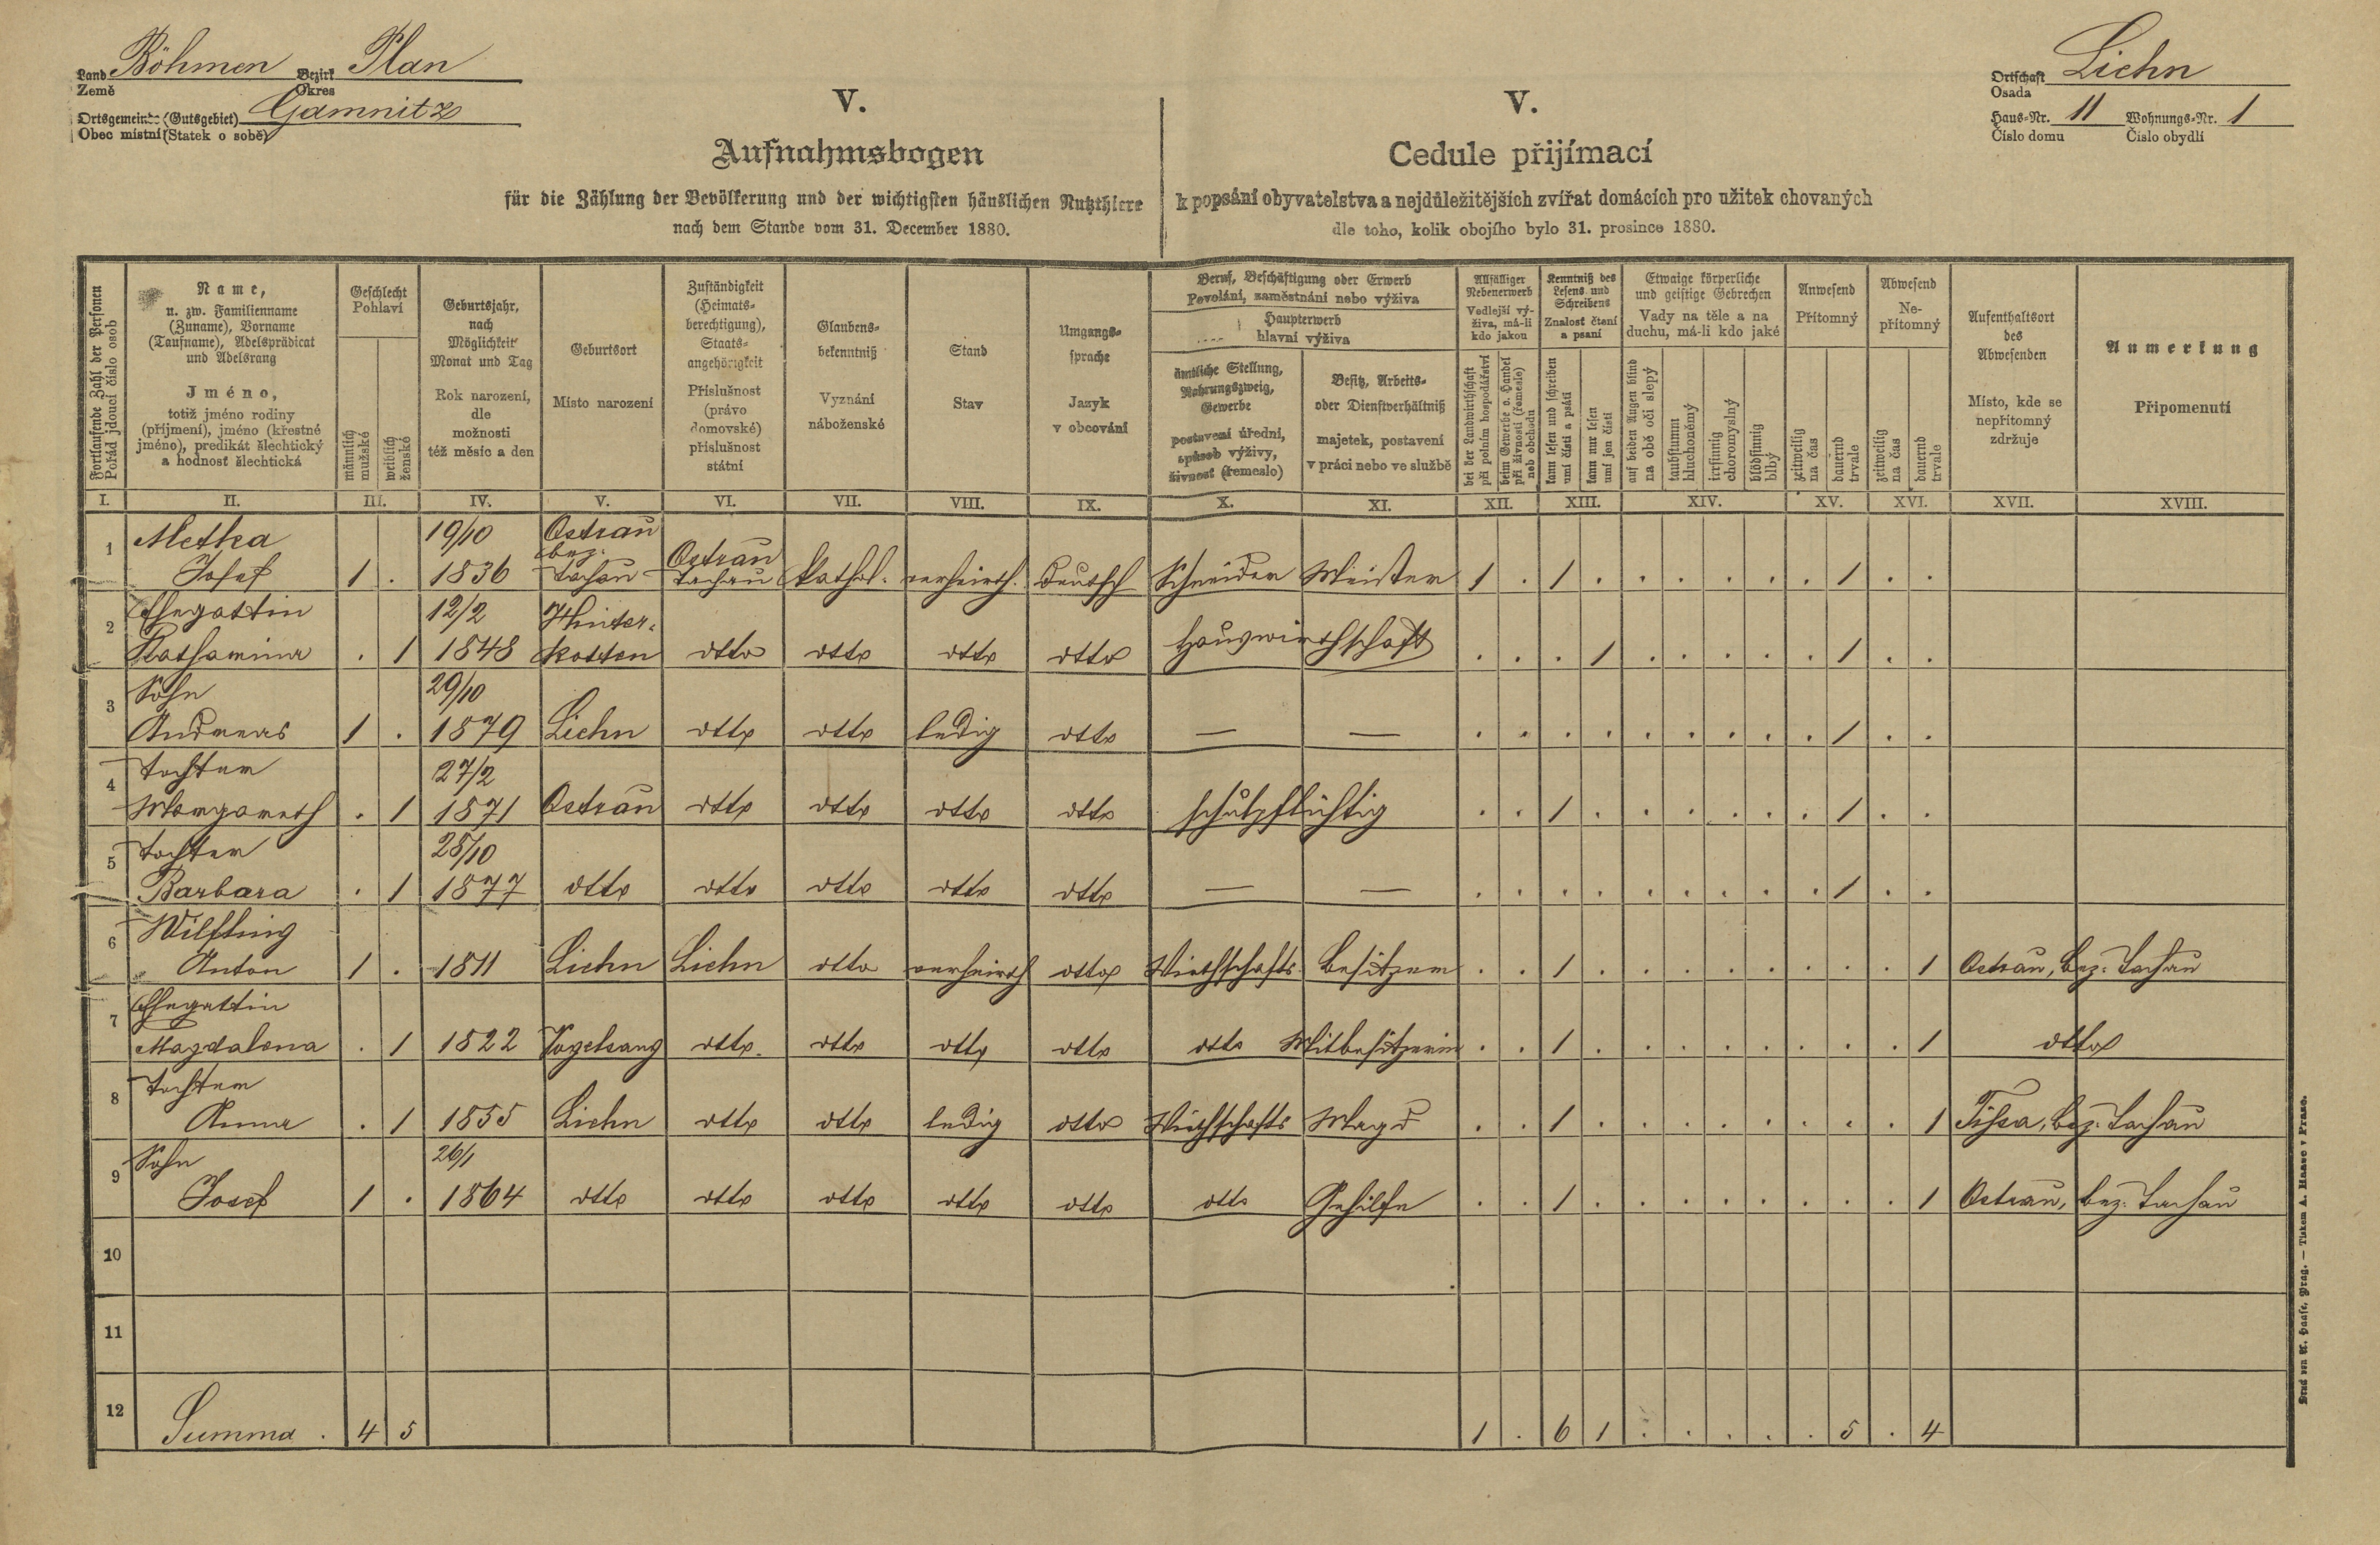 Land Böhmen Bezirk Plan
Země Okres
Ortsgemeinde (Gutsgebiet) Gamnitz
Obec místní (Statek o sobě)
Ortschaft Lichn
Osada
Haus-Nr. 11 Wohnungs-Nr. 1
Číslo domu Číslo obydlí
V.
Aufnahmsbogen
für die Zählung der Bevölkerung und der wichtigsten häuslichen Nutzthiere
nach dem Stande vom 31. December 1880.
V.
Cedule přijímací
k popsání obyvatelstva a nejdůležitějších zvířat domácích pro užitek chovaných
dle toho, kolik obojího bylo 31. prosince 1880.
Fortlaufende Zahl der Personen
Pořád jdoucí číslo osob
Name,
u. zw. Familienname
(Zuname), Vorname
(Taufname), Adelsprädicat
und Adelsrang
Jméno,
totiž jméno rodiny
(příjmení), jméno (křestné
jméno), predikát šlechtický
a hodnosť šlechtická
Geschlecht
Pohlaví
männlich
mužské
weiblich
ženské
Geburtsjahr,
nach
Möglichkeit
Monat und Tag
Rok narození,
dle
možnosti
též měsíc a den
Geburtsort
Místo narození
Zuständigkeit
(Heimats-
berechtigung),
Staats-
angehörigkeit
Příslušnost
(právo
domovské)
příslušnost
státní
Glaubens-
bekenntniß
Vyznání
náboženské
Stand
Stav
Umgangs-
sprache
Jazyk
v obcování
Beruf, Beschäftigung oder Erwerb
Povolání, zaměstnání nebo výživa
Haupterwerb
hlavní výživa
ämtliche Stellung,
Nahrungszweig,
Gewerbe
postavení úřední,
způsob výživy,
živnosť (řemeslo)
Besitz, Arbeits-
oder Dienstverhältniß
majetek, postavení
v práci nebo ve službě
Allfälliger
Nebenerwerb
Vedlejší vý-
živa, má-li
kdo jakou
bei der Landwirthschaft
při polním hospodářství
beim Gewerbe o. Handel
při živnosti (řemesle)
neb obchodu
Kenntniß des
Lesens und
Schreibens
Znalosť čtení
a psaní
kann lesen und schreiben
umí čísti a psáti
kann nur lesen
umí jen čísti
Etwaige körperliche
und geistige Gebrechen
Vady na těle a na
duchu, má-li kdo jaké
auf beiden Augen blind
na obě oči slepý
taubstumm
hluchoněmý
irrsinnig
choromyslný
blödsinnig
blbý
Anwesend
Přítomný
zeitweilig
na čas
dauernd
trvale
Abwesend
Ne-
přítomný
zeitweilig
na čas
dauernd
trvale
Aufenthaltsort
des
Abwesenden
Místo, kde se
nepřítomný
zdržuje
Anmerkung
Připomenutí
I. II. III. IV. V. VI. VII. VIII. IX. X. XI. XII. XIII. XIV. XV. XVI. XVII. XVIII.
1 Methea 19/10 Ostrau
bez. Ostrau
Josef 1 . 1836 Tachau Tachau kathol. verheirth. deutsch Schneider Meister 1 . 1 . . . . . . 1 . .
2 Ehegattin 12/2 Hinter-
Katharina . 1 1848 kotten otto otto otto otto Hauswirthschaft . . . 1 . . . . . 1 . .
3 Sohn 29/10
Andreas 1 . 1879 Lichn otto otto ledig otto — — . . . . . . . . . 1 . .
4 Tochter 27/2
Margareth . 1 1871 Ostrau otto otto otto otto schulpflichtig . . 1 . . . . . . 1 . .
5 Tochter 28/10
Barbara . 1 1877 otto otto otto otto otto — — . . . . . . . . . 1 . .
6 Wilfling
Anton 1 . 1811 Lichn Lichn otto verheirth otto Wirthschafts- Besitzer . . 1 . . . . . . . . 1 Ostrau, bez. Tachau
7 Ehegattin
Magdalena . 1 1822 Vogelsang otto otto otto otto otto Mitbesitzerin . . 1 . . . . . . . . 1 otto
8 Tochter
Anna . 1 1855 Lichn otto otto ledig otto Wirthschafts Magd . . 1 . . . . . . . . 1 Tissa, bez. Tachau
9 Sohn 26/1
Josef 1 . 1864 otto otto otto otto otto otto Gehilfe . . 1 . . . . . . . . 1 Ostrau, bez. Tachau
10
11
12 Summa . 4 5 1 . 6 1 . . . . . 5 . 4
Druck von A. Haase, Prag. — Tiskem A. Haase v Praze.